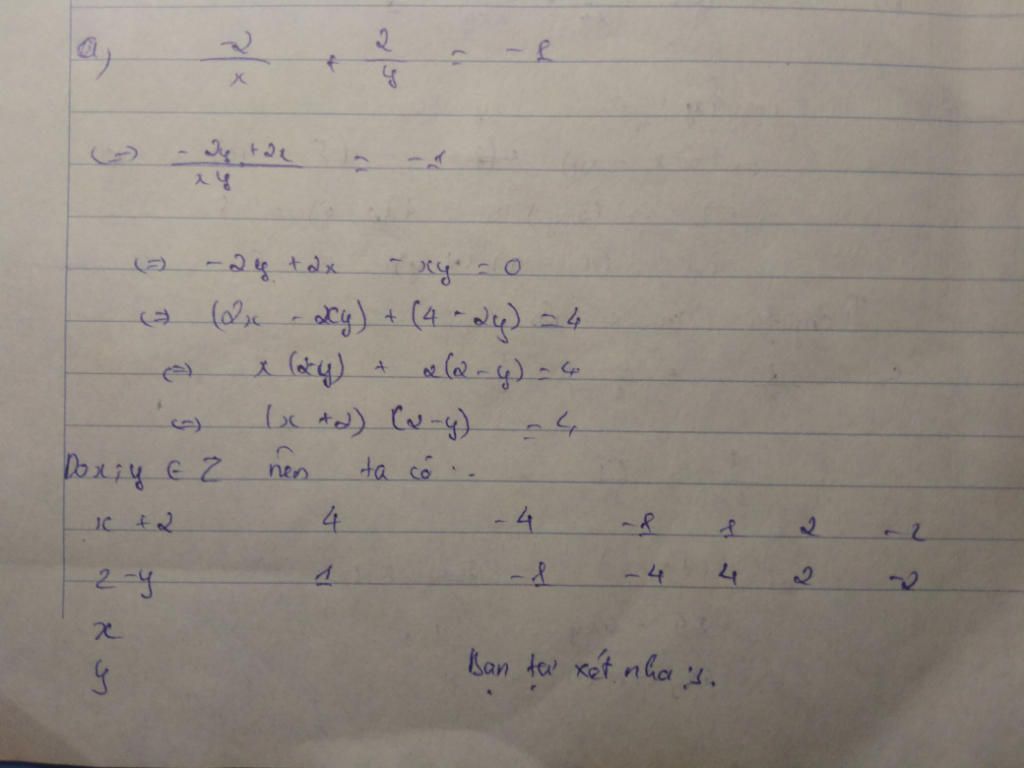 a) -2/x + 2/y = -1
<=> -2y + 2x / xy = -1
<=> -2y + 2x - xy = 0
<=> (2x - 2xy) + (4 - 2y) = 4
<=> x (2y) + 2(2 - y) = 4
<=> (x + 2) (2 - y) = 4
Do x; y ∈ Z nên ta có :
x + 2 4 -4 -1 1 2 -2
2 - y 1 -1 -4 4 2 -2
x
y Bạn tự xét nha